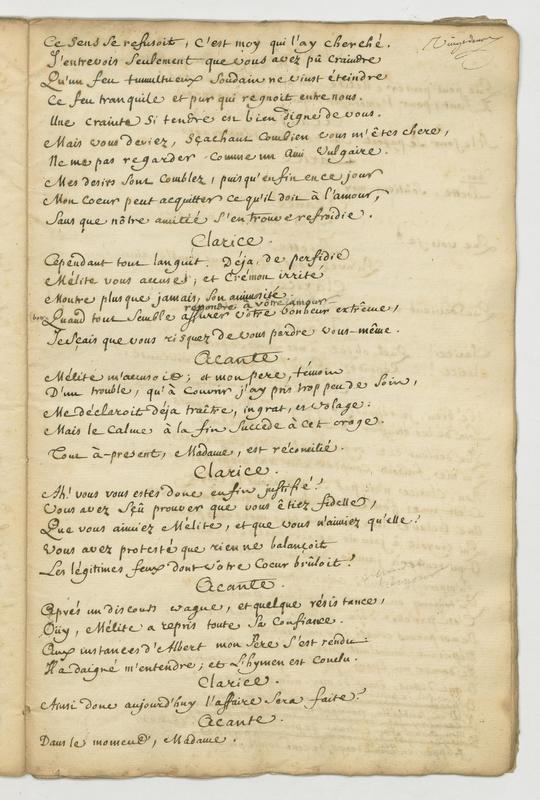 Vingt deux
Ce sens se refusoit, c'est moy qui l'ay cherché.
J'entrevois seulement que vous avez pû craindre
Qu'un feu tumultueux soudain ne vinst éteindre
Ce feu tranquile et pur qui regnoit entre nous.
Une crainte si tendre est bien digne de vous.
Mais vous deviez, sçachant combien vous m'êtes chere,
Ne me pas regarder comme un Ami vulgaire.
Mes desirs sont comblez, puisqu'enfin en ce jour
Mon coeur peut acquitter ce qu'il doit à l'amour,
Sans que nôtre amitié s'en trouve refroidie.
Clarice.
Cependant tout languit. Déja de perfidie
Mélite vous accuse; et Crémon irrité
Montre plus que jamais son animosité.
repondre à vôtre amour
Quand tout semble assurer vôtre bonheur extrême,
Je sçais que vous risquez de vous perdre vous-même.
Acante.
Mélite m'accusoit; et mon pere, témoin
D'un trouble, qu'à couvrir j'ay pris trop peu de soin,
Me déclaroit déja traître, ingrat, et volage:
Mais le calme à la fin succede à cet orage.
Tout à-present, Madame, est réconcilié.
Clarice.
Ah! vous vous estes donc enfin justifié?
Vous avez sçû prouver que vous êtiez fidelle,
Que vous aimiez Mélite, et que vous n'aimiez qu'elle?
Vous avez protesté que rien ne balançoit
Les légitimes feux dont vôtre coeur brûloit?
Acante.
Aprés un discours vague, et quelque résistance,
Oüy, Mélite a repris toute sa confiance.
Aux instances d'Albert mon Pere s'est rendu:
Il a daigné m'entendre; et l'hymen est conclu.
Clarice.
Ainsi donc aujourd'huy l'affaire sera faite?
Acante.
Dans le moment, Madame.